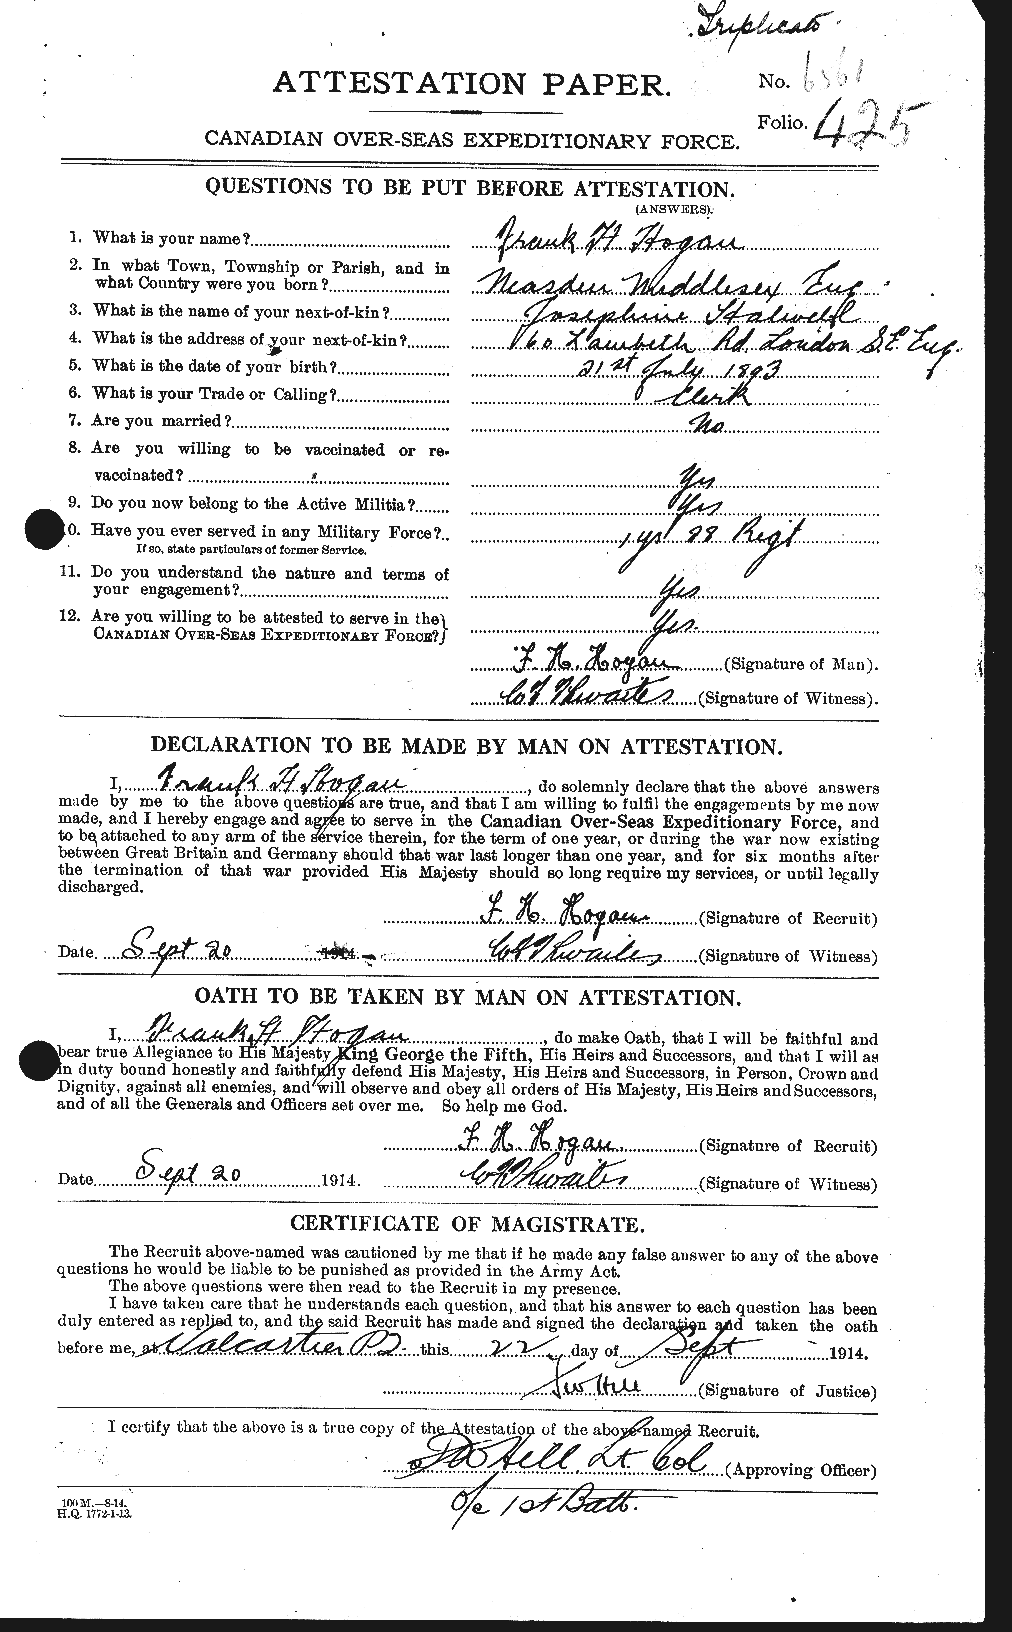 Triplicate
ATTESTATION PAPER.
No. 6561
Folio. 425
CANADIAN OVER-SEAS EXPEDITIONARY FORCE.
QUESTIONS TO BE PUT BEFORE ATTESTATION.
(ANSWERS).
1. What is your name? Frank H Hogan
2. In what Town, Township or Parish, and in
what Country were you born? Neasden Middlesex Eng
3. What is the name of your next-of-kin? Josephine Stalwell
4. What is the address of your next-of-kin? 160 Lambeth Rd London S.E. Eng.
5. What is the date of your birth? 21st July 1893
6. What is your Trade or Calling? Clerk
7. Are you married? No
8. Are you willing to be vaccinated or re-
vaccinated? Yes
9. Do you now belong to the Active Militia? Yes
10. Have you ever served in any Military Force? 1 yr 28 Regt
If so, state particulars of former Service.
11. Do you understand the nature and terms of
your engagement? Yes
12. Are you willing to be attested to serve in the
CANADIAN OVER-SEAS EXPEDITIONARY FORCE? Yes.
F. H. Hogan (Signature of Man).
Thwaites (Signature of Witness).
DECLARATION TO BE MADE BY MAN ON ATTESTATION.
I, Frank H Hogan, do solemnly declare that the above answers
made by me to the above questions are true, and that I am willing to fulfil the engagements by me now
made, and I hereby engage and agree to serve in the Canadian Over-Seas Expeditionary Force, and
to be attached to any arm of the service therein, for the term of one year, or during the war now existing
between Great Britain and Germany should that war last longer than one year, and for six months after
the termination of that war provided His Majesty should so long require my services, or until legally
discharged.
F. H. Hogan (Signature of Recruit)
Date. Sept 20 1914. Thwaites (Signature of Witness)
OATH TO BE TAKEN BY MAN ON ATTESTATION.
I, Frank H Hogan, do make Oath, that I will be faithful and
bear true Allegiance to His Majesty King George the Fifth, His Heirs and Successors, and that I will as
in duty bound honestly and faithfully defend His Majesty, His Heirs and Successors, in Person, Crown and
Dignity, against all enemies, and will observe and obey all orders of His Majesty, His Heirs and Successors,
and of all the Generals and Officers set over me. So help me God.
F. H. Hogan. (Signature of Recruit)
Date. Sept 20 1914. Thwaites (Signature of Witness)
CERTIFICATE OF MAGISTRATE.
The Recruit above-named was cautioned by me that if he made any false answer to any of the above
questions he would be liable to be punished as provided in the Army Act.
The above questions were then read to the Recruit in my presence.
I have taken care that he understands each question, and that his answer to each question has been
duly entered as replied to, and the said Recruit has made and signed the declaration and taken the oath
before me, at Valcartier P.Q. this 22 day of Sept 1914.
FW Hill (Signature of Justice)
I certify that the above is a true copy of the Attestation of the above-named Recruit.
FW Hill Lt Col (Approving Officer)
O/c 1st Batt.
100 M.—8-14.
H.Q. 1772-1-13.